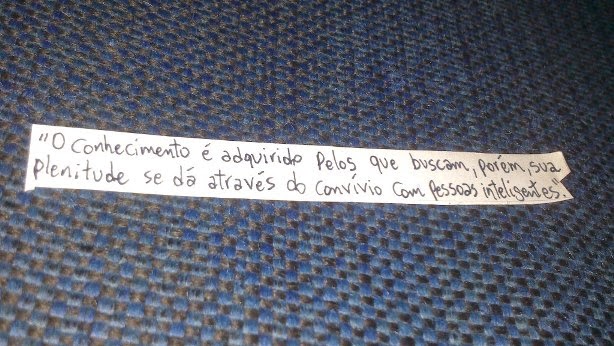 "O conhecimento é adquirido Pelos que buscam, porém, sua
Plenitude se dá através do convívio com Pessoas inteligentes.